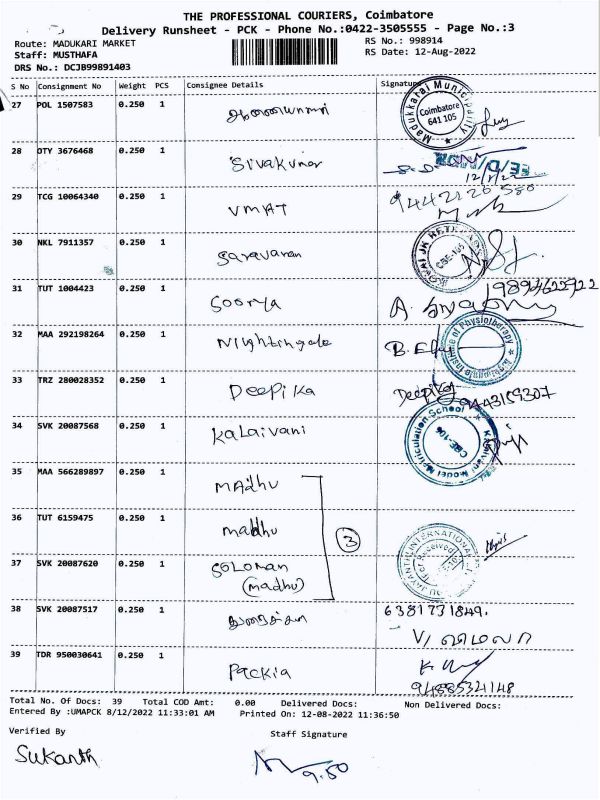 THE PROFESSIONAL COURIERS, Coimbatore
Delivery Runsheet - PCK - Phone No.:0422-3505555 - Page No.:3
Route: MADUKARI MARKET
RS No.: 998914
Staff: MUSTHAFA
RS Date: 12-Aug-2022
DRS No.: DCJB99891403
S No Consignment No Weight PCS Consignee Details Signature
27 POL 1507583 0.250 1
Madukkarai Municipality Coimbatore 641 105
28 OTY 3676468 0.250 1 Sivakumar
29 TCG 10064340 0.250 1 VMAT
30 NKL 7911357 0.250 1 Saravanan
31 TUT 1004423 0.250 1 Soorya
32 MAA 292198264 0.250 1 Nightingale
Institute of Physiotherapy
33 TRZ 280028352 0.250 1 Deepika Deepika 9443159307
34 SVK 20087568 0.250 1 Kalaivani
Kalaivani Model Matriculation School
35 MAA 566289897 0.250 1 Madhu
36 TUT 6159475 0.250 1 Madhu
3
37 SVK 20087620 0.250 1 Soloman
(madhu)
38 SVK 20087517 0.250 1 6381731849.
V, விமலா
39 TDR 950030641 0.250 1 Packia
9488534148
Total No. Of Docs: 39 Total COD Amt: 0.00 Delivered Docs: Non Delivered Docs:
Entered By :UMAPCK 8/12/2022 11:33:01 AM Printed On: 12-08-2022 11:36:50
Verified By
Staff Signature
Sukanth
9.50